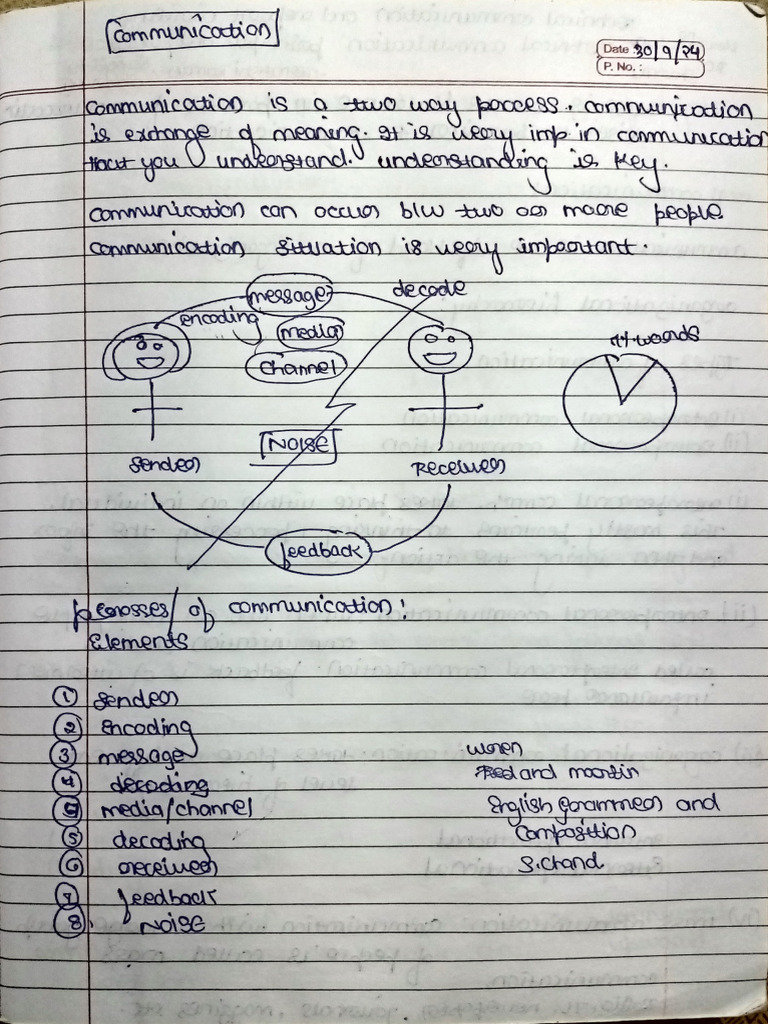 Communication
Date 30/9/24
P. No.:
Communication is a two way process. communication
is exchange of meaning. It is very imp in communication
that you understand. understanding is key.
communication can occur b/w two or more people
communication situation is very important.
message decode
encoding
media
channel
7% words
NOISE
sender Receiver
feedback
processes/ of communication:
Elements
1 sender
2 encoding
3 message
4 decoding
media/channel
5 decoding
6 receiver
7 feedback
8. NOISE
wren
and martin
English Grammer and
Composition
S.Chand